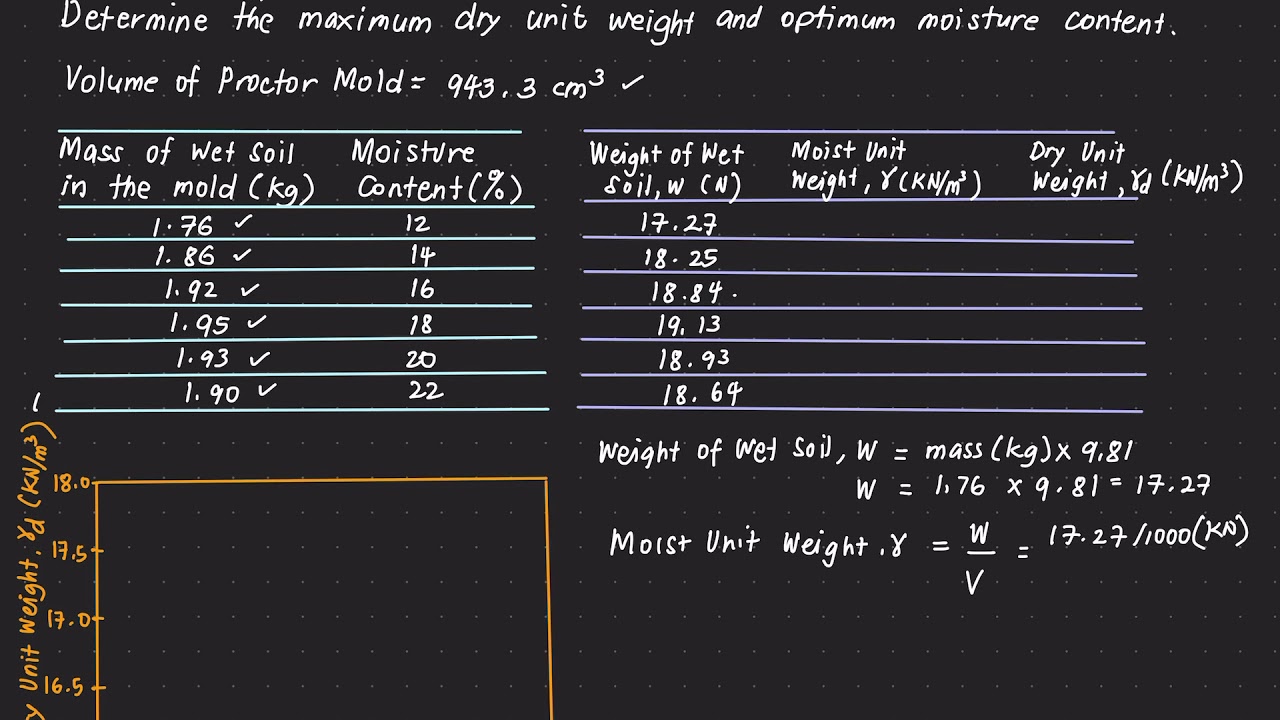 Determine the maximum dry unit weight and optimum moisture content.
Volume of Proctor Mold = 943.3 cm³ ✓
Mass of Wet Soil in the mold (kg) Moisture Content (%)
1.76 ✓ 12
1.86 ✓ 14
1.92 ✓ 16
1.95 ✓ 18
1.93 ✓ 20
1.90 ✓ 22
Weight of Wet Soil, W (N) Moist Unit Weight, γ (KN/m³) Dry Unit Weight, γd (KN/m³)
17.27
18.25
18.84
19.13
18.93
18.64
Weight of Wet Soil, W = mass (kg) × 9.81
W = 1.76 × 9.81 = 17.27
Moist Unit Weight, γ = W/V = 17.27/1000 (KN)
Unit Weight, γd (KN/m³)
18.0
17.5
17.0
16.5